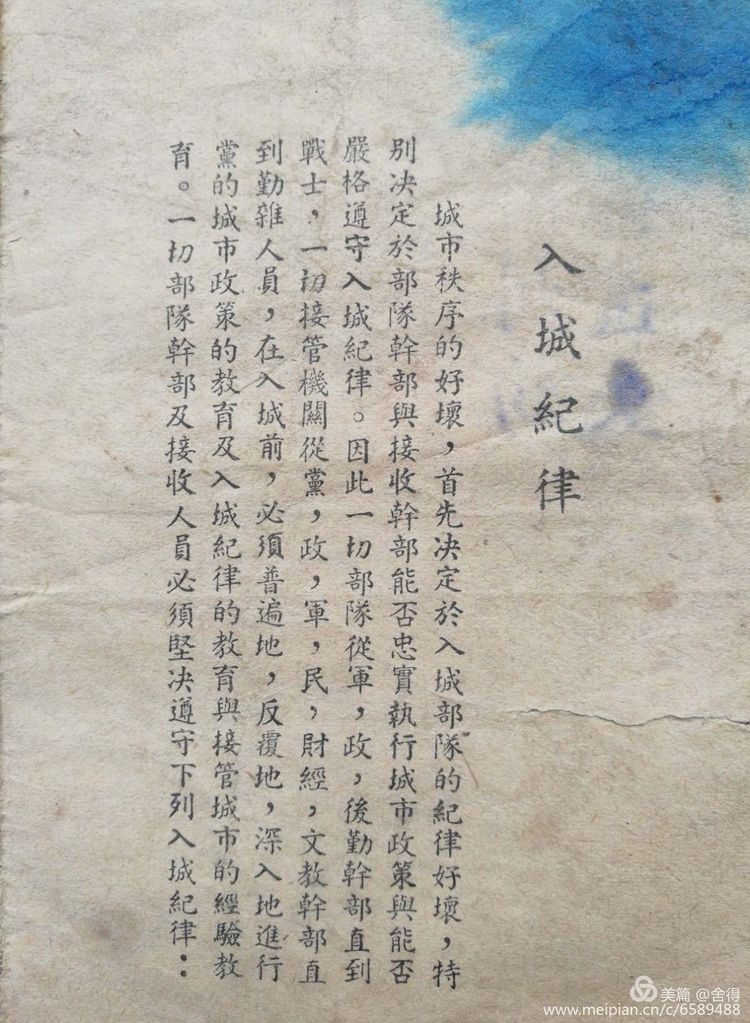 入城紀律
城市秩序的好壞，首先決定於入城部隊的紀律好壞，特
別決定於部隊幹部與接收幹部能否忠實執行城市政策與能否
嚴格遵守入城紀律。因此一切部隊從軍，政，後勤幹部直到
戰士，一切接管機關從黨，政，軍，民，財經，文教幹部直
到勤雜人員，在入城前，必須普遍地，反覆地，深入地進行
黨的城市政策的教育及入城紀律的教育與接管城市的經驗教
育。一切部隊幹部及接收人員必須堅決遵守下列入城紀律：
美篇 @舍得
www.meipian.cn/c/6589488